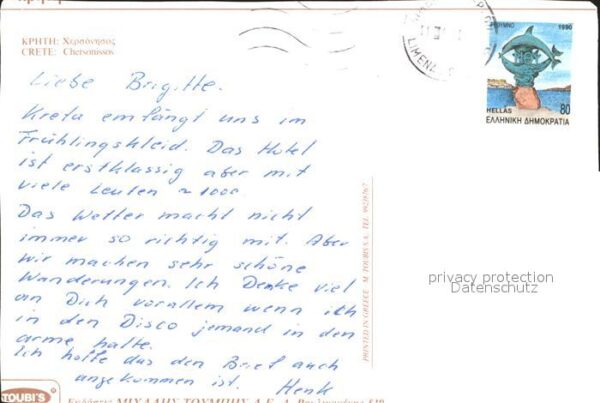 ΚΡΗΤΗ: Χερσόνησος
CRETE: Chersonissos
Liebe Brigitte.
Kreta emfängt uns im
Frühlingskleid. Das Hotel
ist erstklassig aber mit
viele Leuten ~ 1000.
Das Wetter macht nicht
immer so richtig mit. Aber
wir machen sehr schöne
Wanderungen. Ich Denke viel
an Dich vorallem wenn ich
in den Disco jemand in den
arme halte.
Ich hoffe das den Brief auch
angekommen ist. Henk
1990
HELLAS 80
ΕΛΛΗΝΙΚΗ ΔΗΜΟΚΡΑΤΙΑ
LIMEN
privacy protection
Datenschutz
PRINTED IN GREECE - M. TOUBI'S S.A.
TOUBI'S
ΜΙΧΑΛΗΣ ΤΟΥΜΠΗΣ Α.Ε.